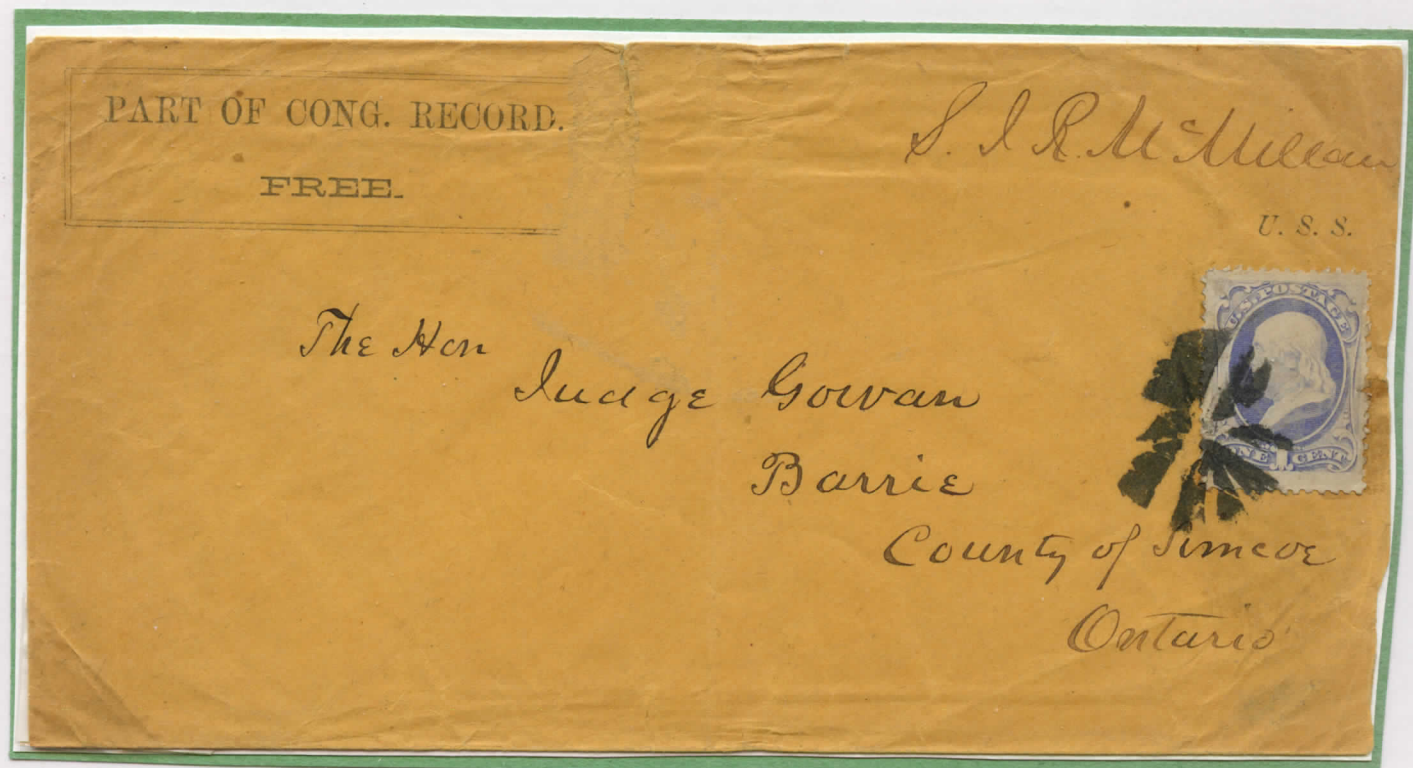 PART OF CONG. RECORD.
FREE.
S. J. R. McMillan
U. S. S.
U.S. POSTAGE
ONE 1 CENT
The Hon
Judge Gowan
Barrie
County of Simcoe
Ontario